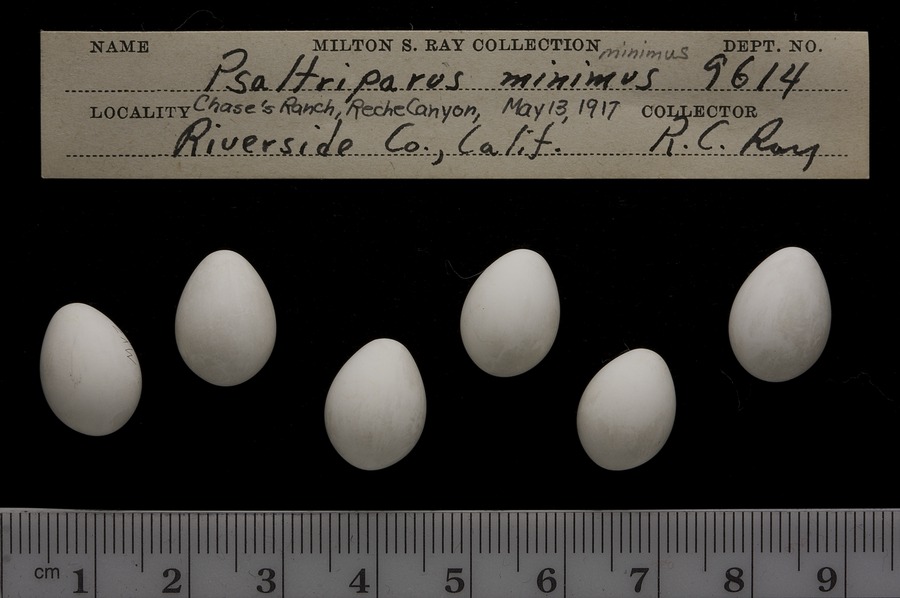 NAME MILTON S. RAY COLLECTION minimus DEPT. NO.
Psaltriparus minimus 9614
LOCALITY Chase's Ranch, Reche Canyon, May 13, 1917 COLLECTOR
Riverside Co., Calif. R.C. Ray
cm 1 2 3 4 5 6 7 8 9